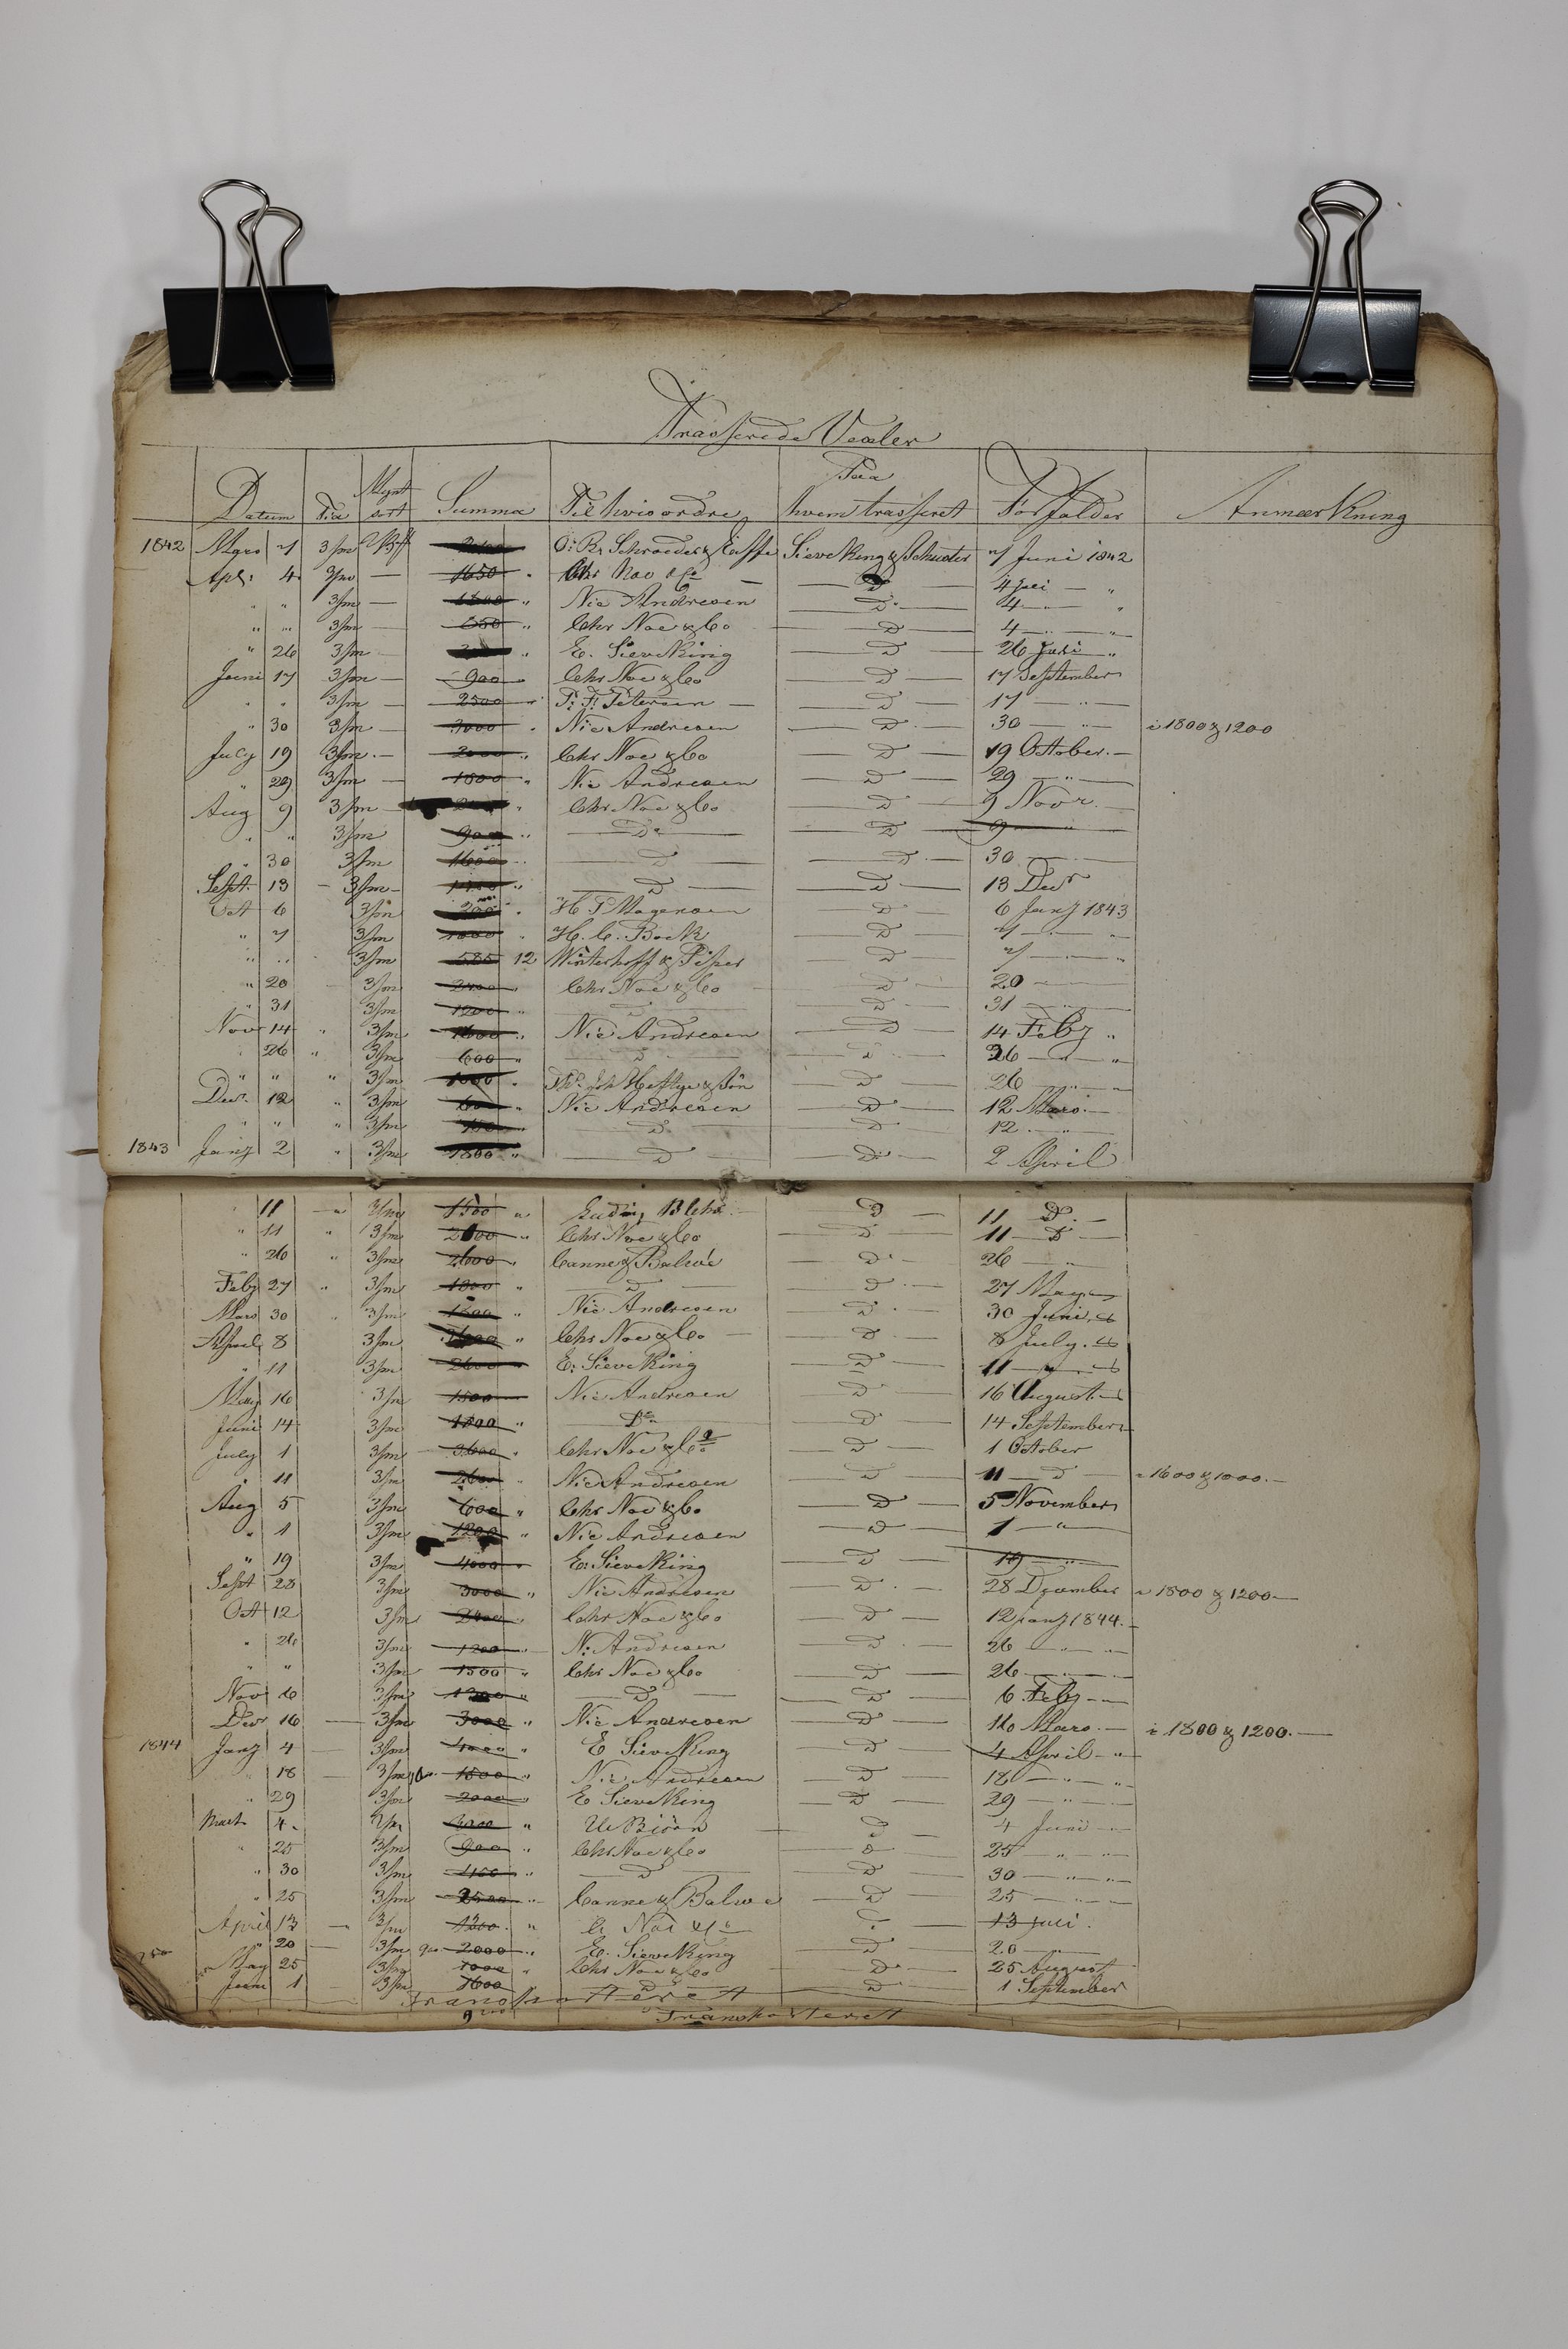 Trasserede Vexler
Datum Dia Mynt sort Summa Til hvis ordre Paa hvem trasseret Forfalder Anmærkning
1842 Mars 7 3/m O: R: Schroeder & Sieveking & Schuster 7 Juni 1842
Apl: 4 3/m — 1650 " Chr Noe & Co — D 4 Juli — "
" " 3/m — 1800 " Nic Andresen — D — 4 — "
" " 3/m — 650 " Chr Noe & Co — D — 4 — "
" 26 3/m — " E. Sieveking — D — 26 Juli "
Juni 17 3/m — 900 " Chr Noe & Co — D — 17 September
" " 3/m — 2500 " P: F: Petersen — D — 17 — " —
" 30 3/m — 3000 " Nic Andresen — D — 30 — " — i 1800 & 1200
July 19 3/m — 2000 " Chr Noe & Co — D — 19 October —
" 29 3/m — 1800 " Nic Andresen — D — 29 — " —
Aug 9 3/m — " Chr Noe & Co — D — 9 Novr. —
" " 3/m 900 " — Do — D — 9 — " —
" 30 3/m 1600 " — D — D — 30 —
Sept. 13 — 3/m — " — D — D — 13 Decr
Oct 6 3/m 200 " H. P Magensen — D — 6 Janj 1843
" 7 3/m 1000 " H. C. Bock — D — 7 — "
" " 3/m 585 12 Winterhoff & Piper — D — 7 — "
" 20 3/m " Chr Noe & Co — D — 20 —
" 31 3/m 1200 " — D — D — 31 —
Nov 14 " 3/m 1600 " Nic Andresen — D — 14 Febj "
" 26 " 3/m 600 " — D — D — 26 — "
" " " 3/m 1000 " Joh Heftye & Søn — D — 26 — "
Decr. 12 " 3/m 600 " Nic Andresen — D — 12 Mars. —
" " " 3/m " — D — D — 12 — " —
1843 Janj 2 " 3/m 1800 " — D — D — 2 April
" 11 — " 3/m 1500 " — D — 11 D. —
" 11 " 3/m 2000 " Chr Noe & Co — D — 11 — D —
" 26 " 3/m 2600 " Canne & Balwé — D — 26 — " —
Febj 27 " 3/m 1800 " — D — D — 27 May —
Mars 30 " 3/m 1800 " Nic Andresen — D — 30 Juni
April 8 3/m " Chr Noe & Co — D — 8 July.
" 11 3/m 2600 " E: Sieveking — D — 11 — " —
May 16 3/m 1500 Nic Andresen — D — 16 August —
Juni 14 3/m 1800 " — Do — D — 14 September
July 1 3/m 3600 " Chr Noe & Co — D — 1 October
" 11 3/m 2600 " Nic Andresen — D — 11 — D — 1600 & 1000. —
Aug 5 3/m 600 " Chr Noe & Co — D — 5 November
" 1 3/m 1200 " Nic Andresen — D — 1 — " —
" 19 3/m 4000 " E: Sieveking — D — 19 — " —
Sept 28 3/m 3000 " Nic Andresen — D — 28 December i 1800 & 1200 —
Oct 12 3/m 2400 " Chr Noe & Co — D — 12 janj 1844. —
" 26 3/m 1200 — N: Andresen — D — 26 — " —
" " 3/m 1500 " Chr Noe & Co — D — 26 — " —
Nov 6 3/m 1300 " — D — D — 6 Febj — " —
Decr 16 — 3/m 3000 " Nic Andresen — D — 16 Mars. — i 1800 & 1200. —
1844 Janj 4 — 3/m 4000 " E Sieveking — D — 4 April — "
" 18 3/m 1500 " Nic Andresen — D — 18 — " — "
" 29 3/m 2000 " E Sieveking — D — 29 — " —
Mart 4. " — D — 4 Juni —
" 25 3/m 900 " Chr Noe & Co — D — 25 — " —
" 30 3/m 1100 " — D — D — 30 — " —
" 25 3/m 2500 " Canne & Balwe — D — 25 — " —
April 13 — 3/m 1300 " C Noe & Co — 13 juli.
" 20 — 3/m 2000 " E. Sieveking — D — 20 — " —
May 25 3/m 1000 " Chr Noe & Co — D — 25 August
Juni 1 3/m 1600 — D — D — 1 September
Transporteret
Transporteret